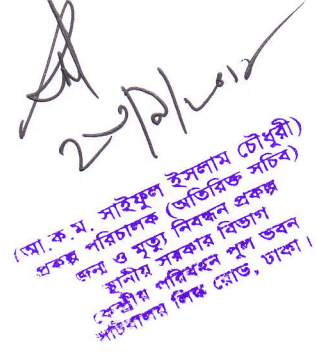 (আ.ক.ম. সাইফুল ইসলাম চৌধুরী)
প্রকল্প পরিচালক (অতিরিক্ত সচিব)
জন্ম ও মৃত্যু নিবন্ধন প্রকল্প
স্থানীয় সরকার বিভাগ
কেন্দ্রীয় পরিবহন পুল ভবন
সচিবালয় লিংক রোড, ঢাকা।